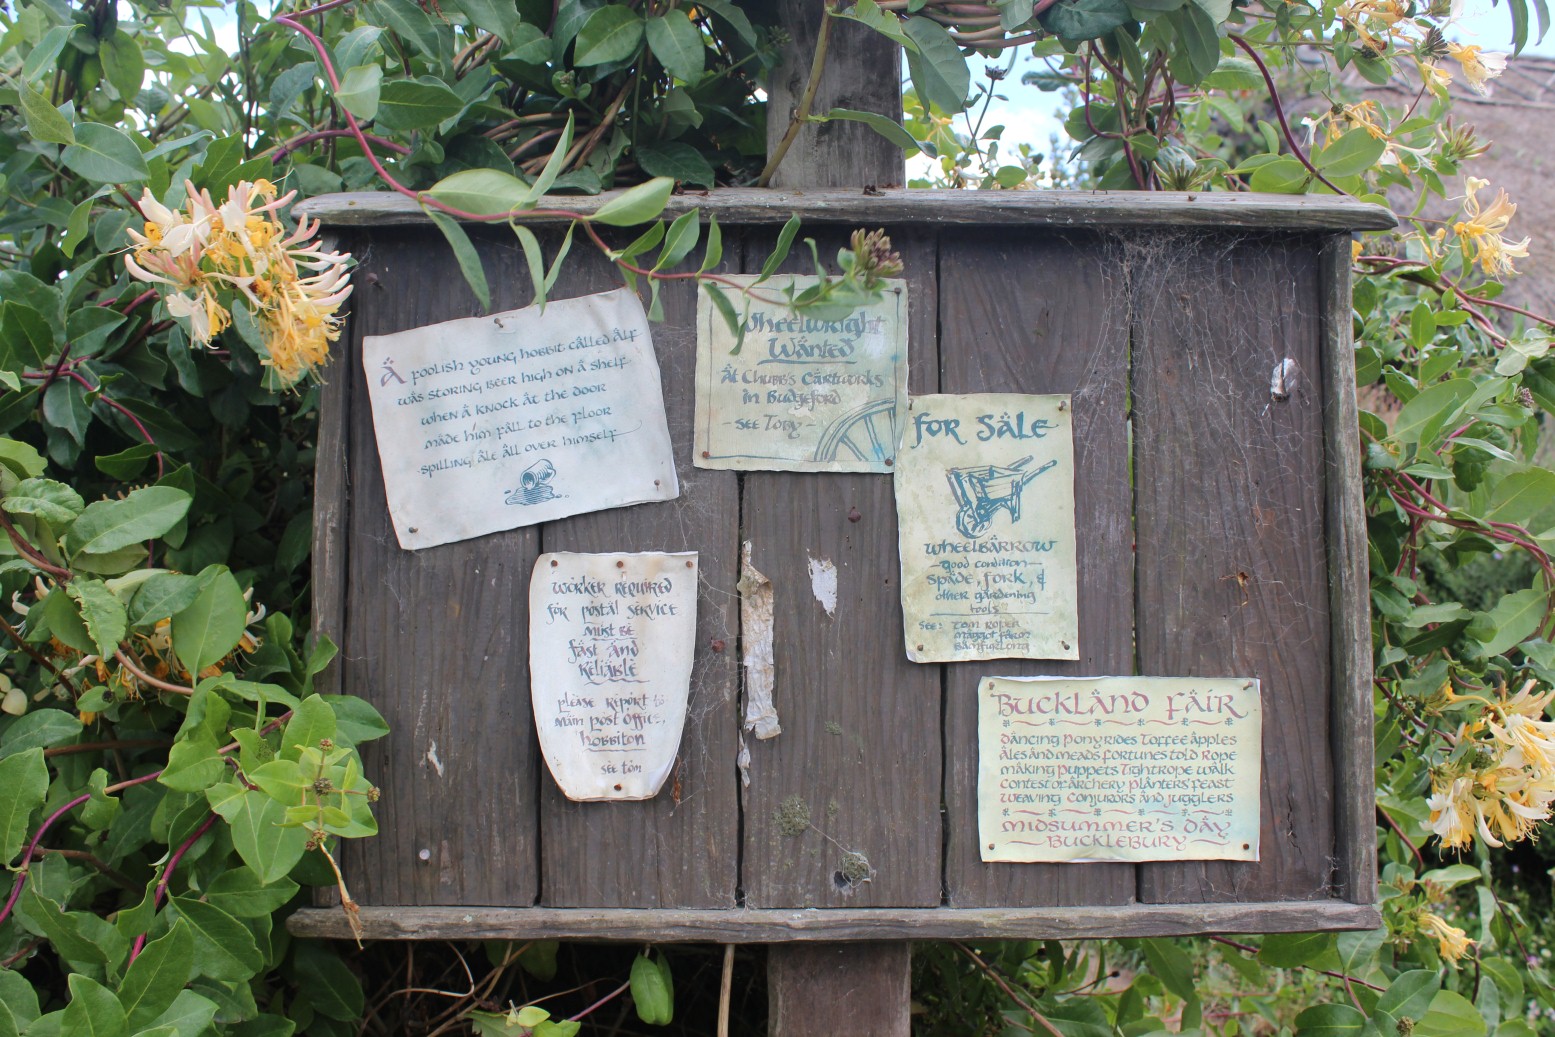 A foolish young hobbit called Alf
was storing beer high on a shelf
when a knock at the door
made him fall to the floor
spilling ale all over himself
Wheelwright
Wanted
At Chubb's Cartworks
in Budgeford
- see Tony -
for sale
wheelbarrow
good condition
spade, fork, &
other gardening
tools
see Tom Roper
Maggot farm
Bamfurlong
worker required
for postal service
must be
fast and
reliable
please report to
main post office,
hobbiton
see tom
BUCKLAND FAIR
dancing pony rides toffee apples
ales and meads fortunes told rope
making puppets tightrope walk
contest of archery planters' feast
weaving conjurors and jugglers
MIDSUMMER'S DAY
BUCKLEBURY